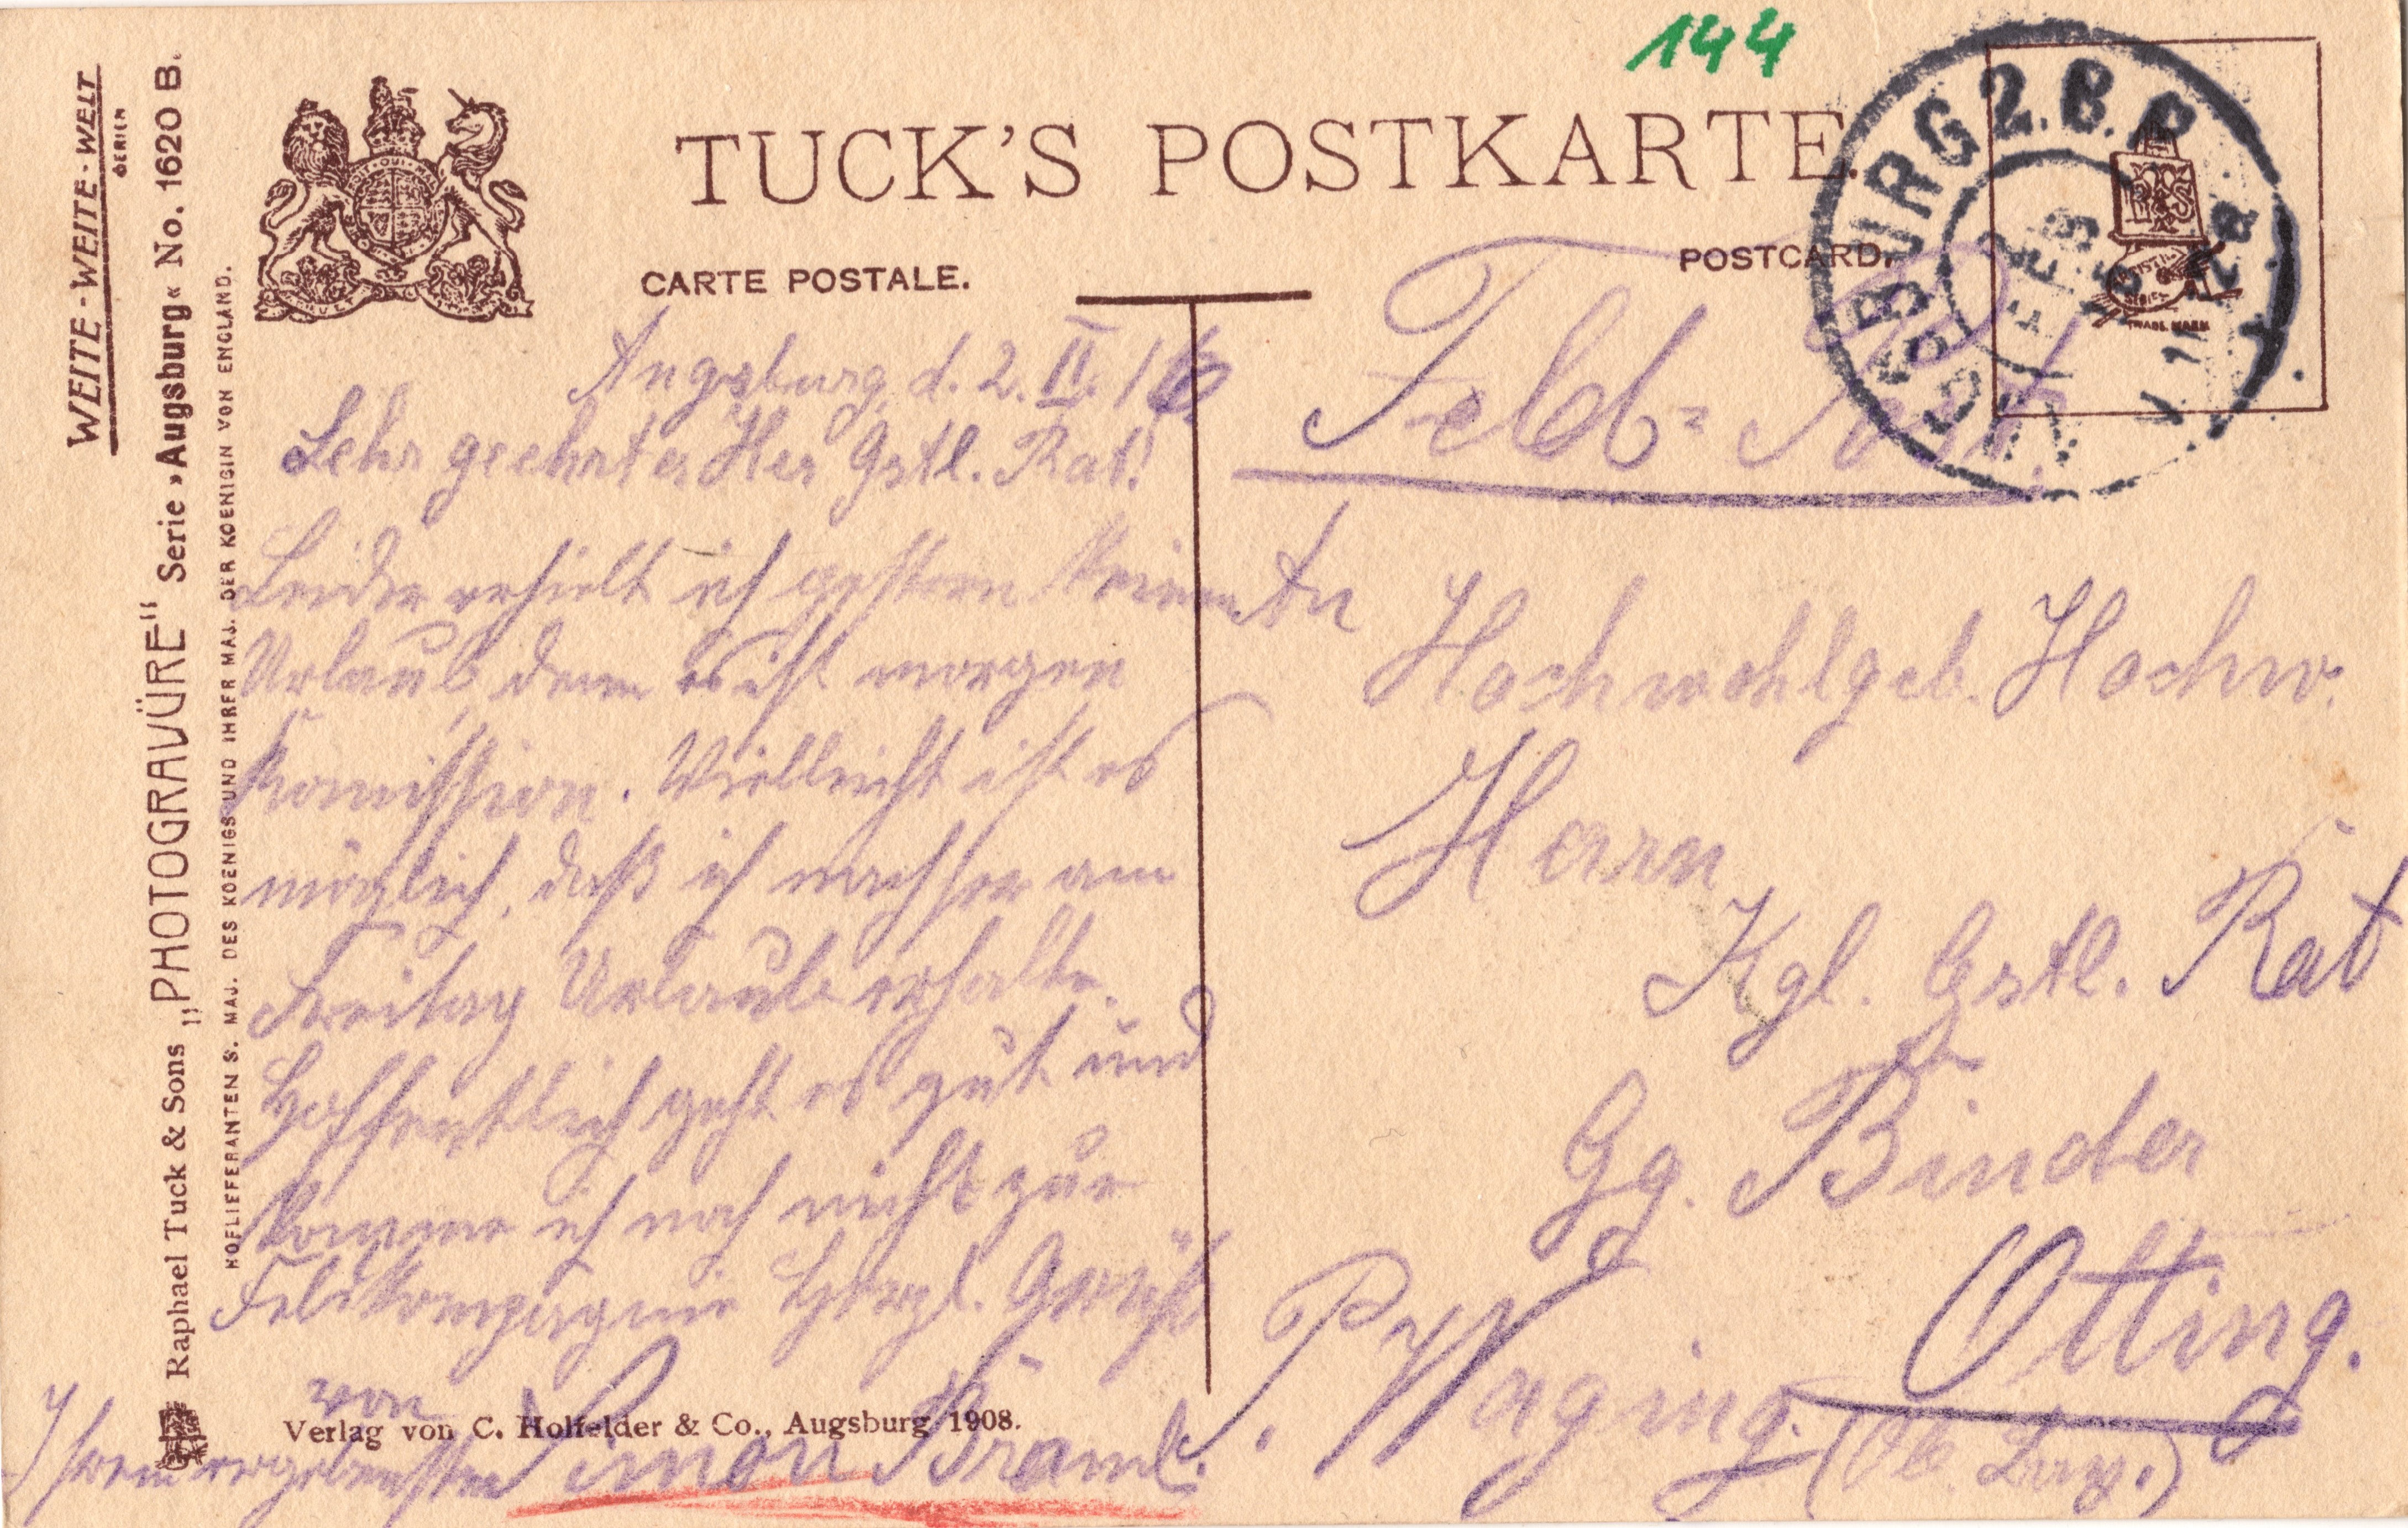 144
TUCK'S POSTKARTE.
CARTE POSTALE.
POSTCARD.
WEITE-WEITE-WELT
SERIEN
Raphael Tuck & Sons „PHOTOGRAVÜRE“ Serie »Augsburg« No. 1620 B.
HOFLIEFERANTEN S. MAJ. DES KOENIGS UND IHRER MAJ. DER KOENIGIN VON ENGLAND.
BURG 2. B.P.
FEB
Augsburg, d. 2. II. 16
Sehr geehrter Herr Gstl. Rat!
Leider erhielt ich gestern keinen
Urlaub, denn es ist morgen
Komission. Vielleicht ist es
möglich, daß ich nachher am
Freitag Urlaub erhalte.
Hoffentlich geht es gut und
komme ich noch nicht zur
Feldkompagnie Herzl. Grüße
von
Ihrem ergebensten Simon Bräml.
Verlag von C. Holfelder & Co., Augsburg 1908.
Feld-Post.
An
Hochwohlgeb. Hochw.
Herrn
Kgl. Gstl. Rat
Gg. Binder
Otting.
P. Waging.